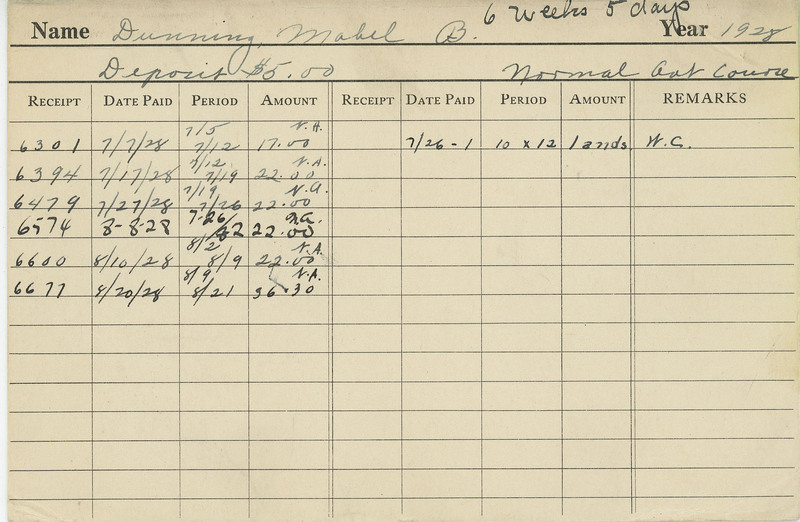 6 weeks 5 days
Name Dunning, Mabel B. Year 1928
Deposit $5.00 Normal Art Course
RECEIPT DATE PAID PERIOD AMOUNT RECEIPT DATE PAID PERIOD AMOUNT REMARKS
7/5 N.A.
6301 7/7/28 7/12 17.00 7/26 - 1 10 x 12 lands. W.C.
7/12 N.A.
6394 7/17/28 7/19 22.00
7/19 N.A.
6479 7/27/28 7/26 22.00
7-26 N.A.
6574 8-8-28 8/2 22.00
8/2 N.A.
6600 8/10/28 8/9 22.00
8/9 N.A.
6677 8/20/28 8/21 36.30